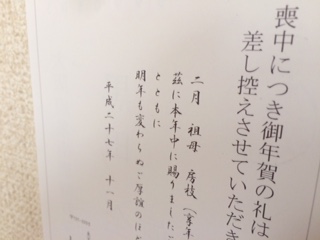 喪中につき御年賀の礼は
差し控えさせていただき
二月 祖母 房枝 (享年
茲に本年中に賜りました
とともに
明年も変わらぬご厚誼のほど
平成二十七年 十一月